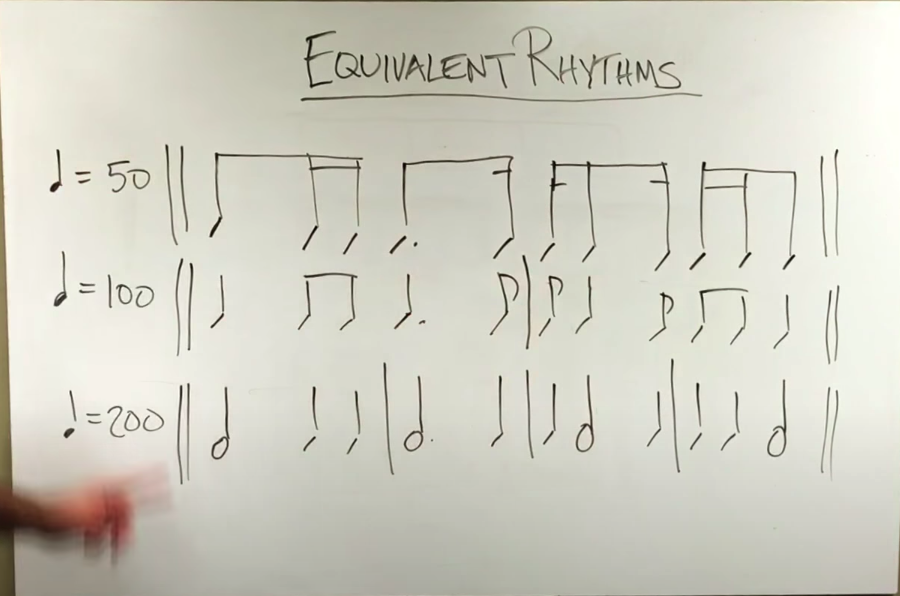 EQUIVALENT RHYTHMS
♩ = 50
♩ = 100
♩ = 200